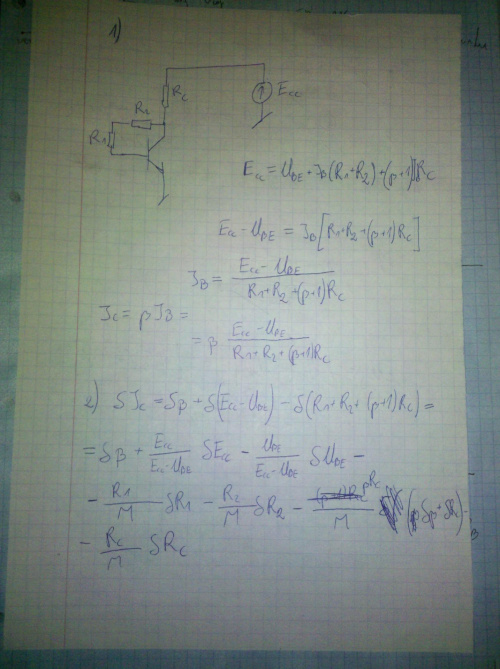 1)
Rc
R2
R1
Ecc
Ecc = UBE + IB(R1+R2) + (β+1)IBRc
Ecc - UBE = IB[R1+R2+(β+1)Rc]
IB = Ecc - UBE / R1+R2+(β+1)Rc
Ic = βIB =
= β Ecc - UBE / R1+R2+(β+1)Rc
2) δIc = δβ + δ(Ecc - UBE) - δ(R1+R2+(β+1)Rc) =
= δβ + Ecc / Ecc - UBE δEcc - UBE / Ecc - UBE δUBE -
- R1 / M δR1 - R2 / M δR2 - βRc / M (δβ + δR) -
- Rc / M δRc